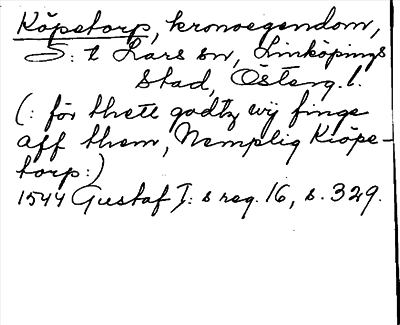 Köpetorp, kronoegendom,
S:t Lars sn, Linköpings
stad, Österg.l.
(: för thette godtz wÿ finge
aff them, Nemplig Kiöpe-
torp:)
1544 Gustaf I:s reg. 16, s. 329.